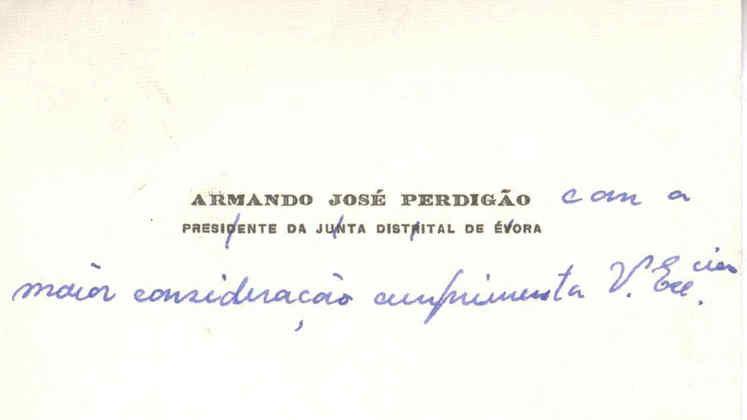 ARMANDO JOSÉ PERDIGÃO com a
PRESIDENTE DA JUNTA DISTRITAL DE ÉVORA
maior consideração cumprimenta V. Excia.